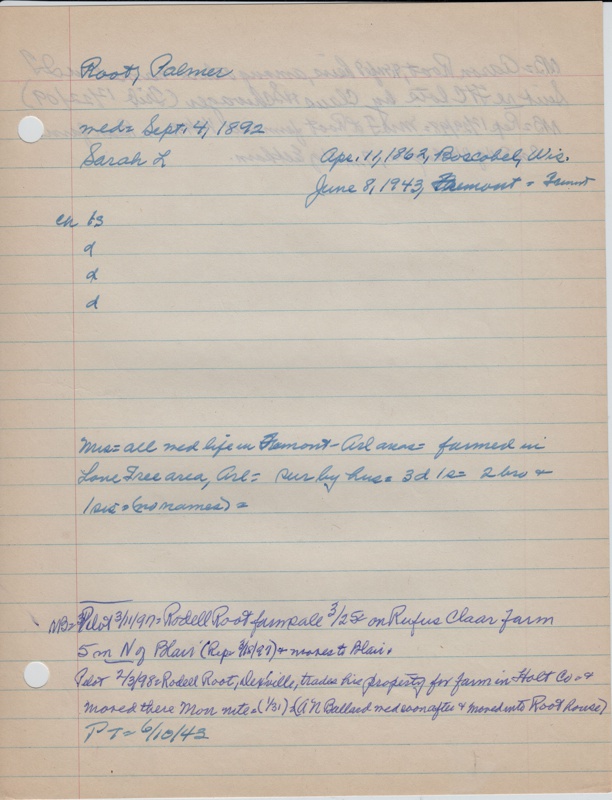 Root, Palmer
med= Sept. 4, 1892
Sarah L Apr. 11, 1862, Boscobel, Wis.
June 8, 1943, Fremont = Fremont
ch b3
d
d
d
Mrs= all med life in Fremont - Arl areas= farmed in
Lone Tree area, Arl= sur by hus= 3d 1s= 2 bro &
1 sis= (no names)=
NB= Pilot 3/11/97= Rodell Root farm sale 3/25 on Rufus Claar farm
5 m N of Blair (Rep 3/15/97) & moves to Blair.
Pilot 2/3/98= Rodell Root, trades his property for farm in Holt Co &
moved there Mon nite= (1/31)= (A N Ballard med soon after & moved into Root house)
P T= 6/10/43